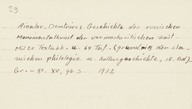 Ainalov, Demetrius. Geschichte der russischen
Monumentalkunst der vormoskovitischen Zeit
mit Textabb. u. 69 Taf. (Grundriss der sla-
vischen Philologie u. Kulturgeschichte,
Gr. - 8°. XV, 96 S. 1932